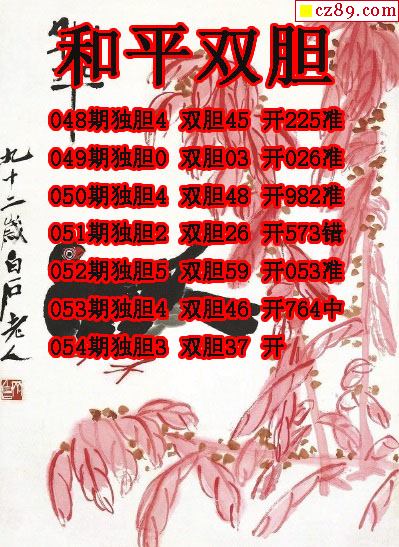 cz89.com
和平双胆
048期独胆4 双胆45 开225准
049期独胆0 双胆03 开026准
050期独胆4 双胆48 开982准
051期独胆2 双胆26 开573错
052期独胆5 双胆59 开053准
053期独胆4 双胆46 开764中
054期独胆3 双胆37 开
九十二岁白石老人